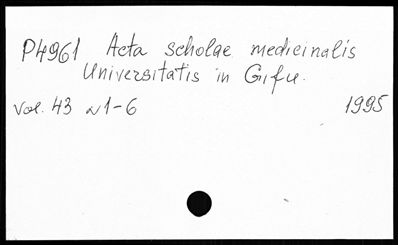 P4961 Acta scholae medicinalis
Universitatis in Gifu.
Vol. 43 N1-6 1995